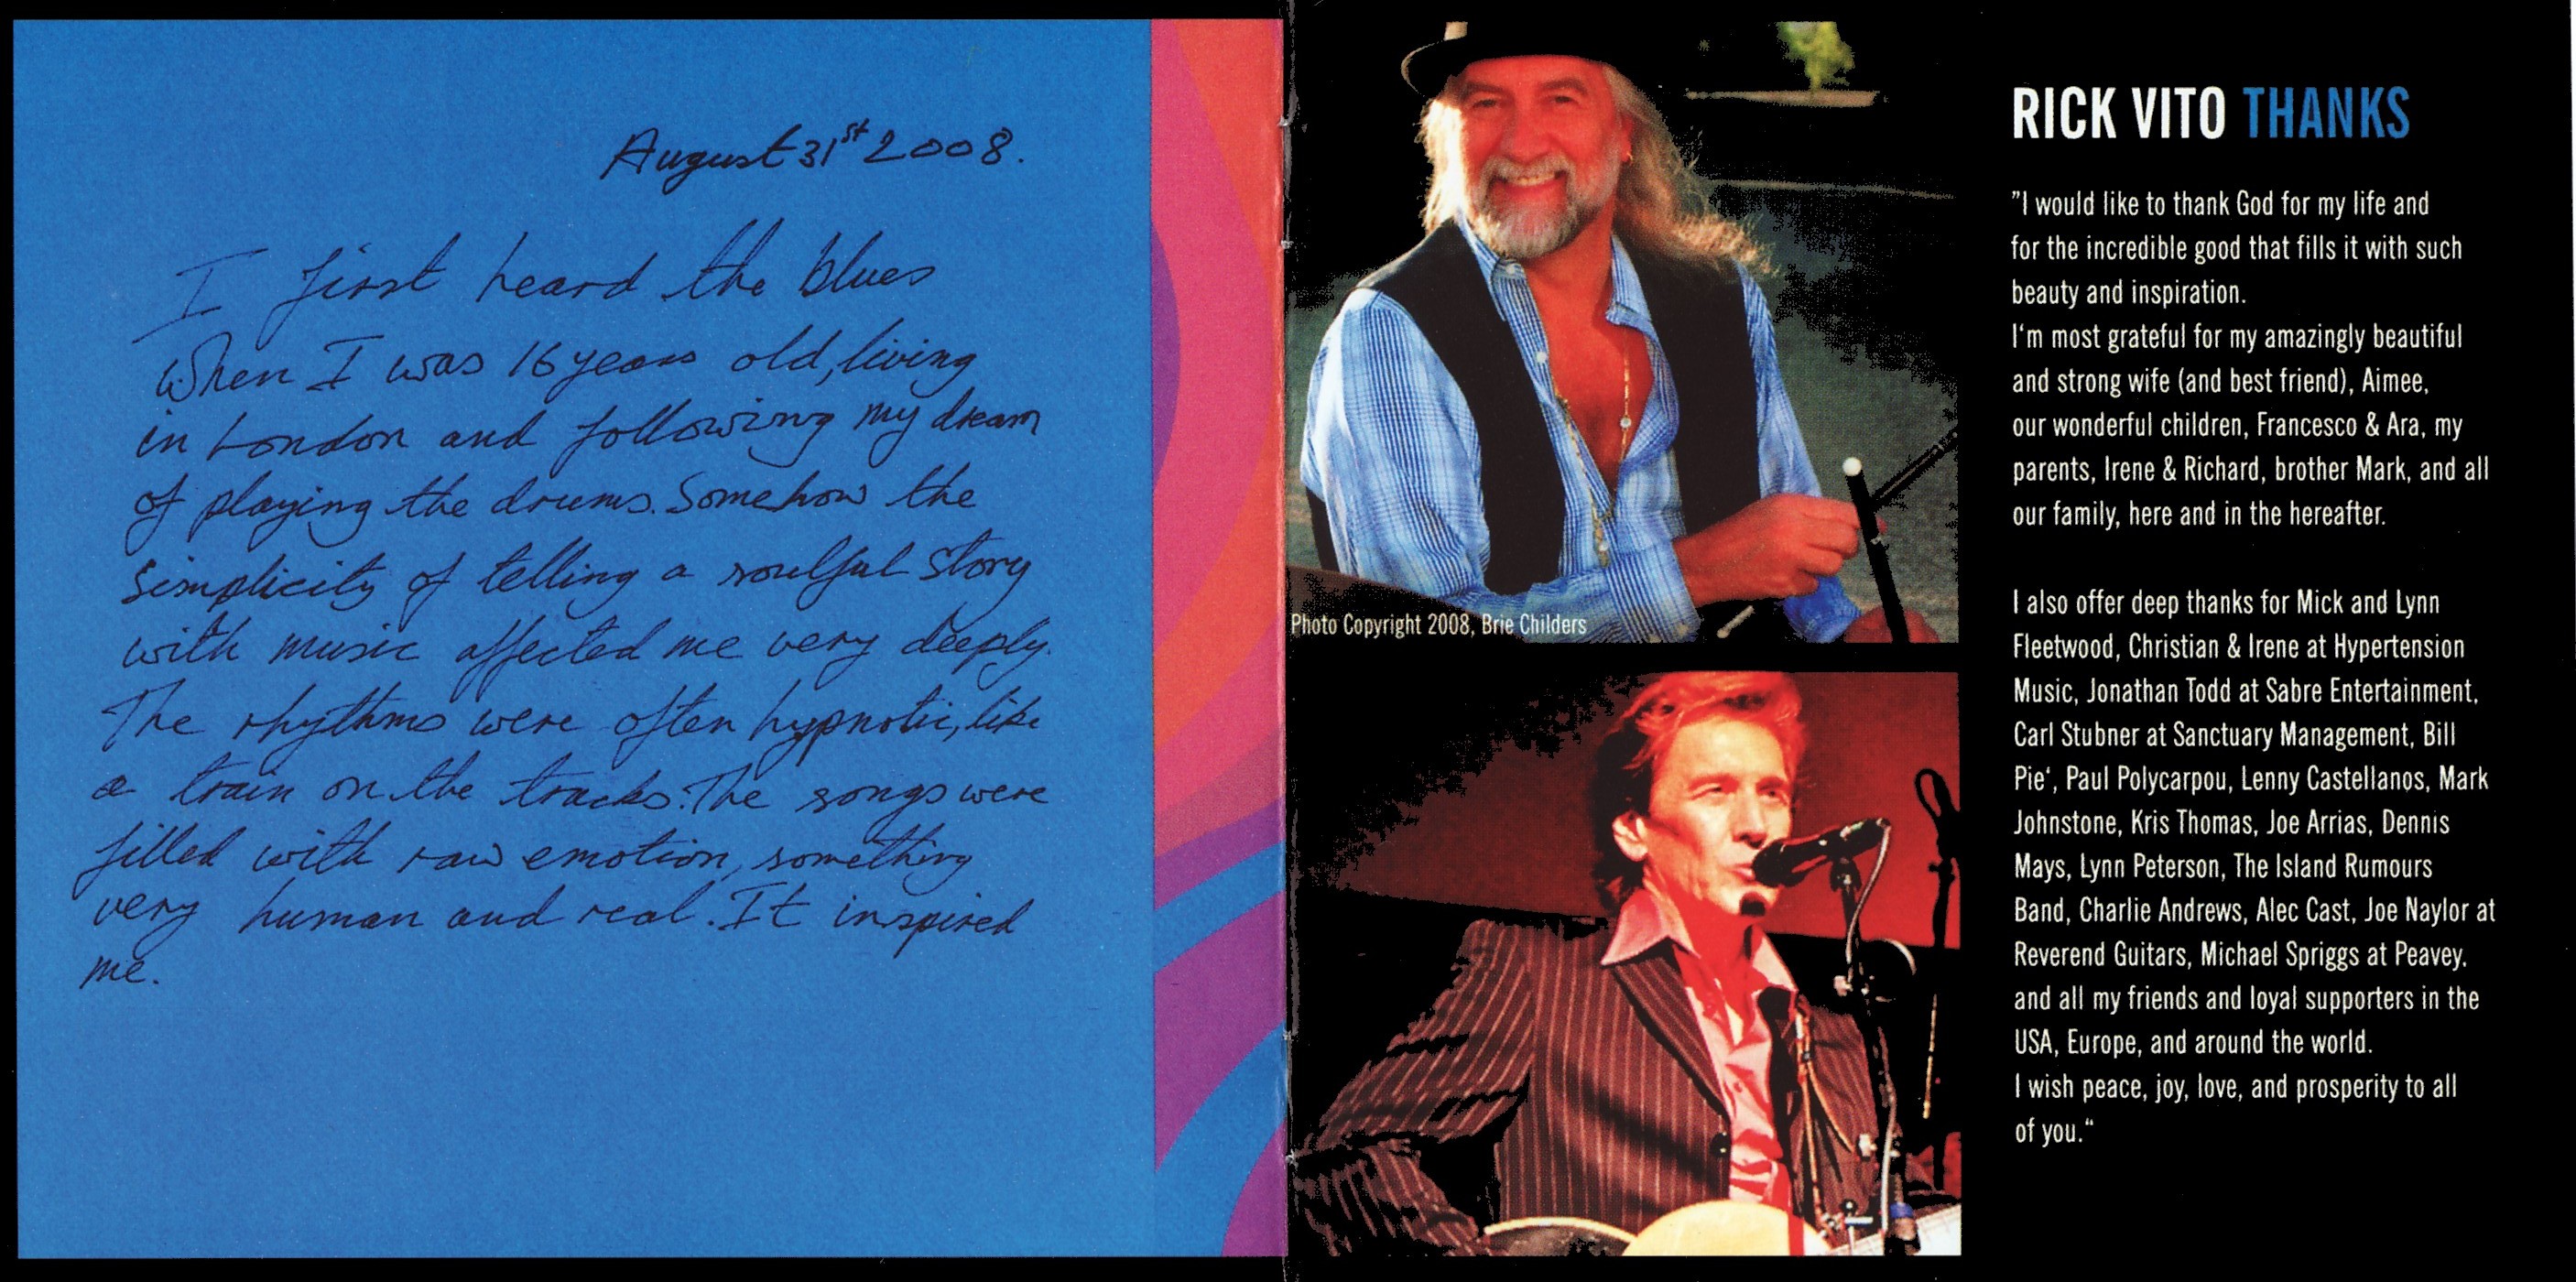 August 31st 2008.
I first heard the blues
when I was 16 years old, living
in London and following my dream
of playing the drums. Somehow the
simplicity of telling a soulful story
with music affected me very deeply.
The rhythms were often hypnotic, like
a train on the tracks. The songs were
filled with raw emotion, something
very human and real. It inspired
me.
Photo Copyright 2008, Brie Childers
RICK VITO THANKS
"I would like to thank God for my life and
for the incredible good that fills it with such
beauty and inspiration.
I'm most grateful for my amazingly beautiful
and strong wife (and best friend), Aimee,
our wonderful children, Francesco & Ara, my
parents, Irene & Richard, brother Mark, and all
our family, here and in the hereafter.
I also offer deep thanks for Mick and Lynn
Fleetwood, Christian & Irene at Hypertension
Music, Jonathan Todd at Sabre Entertainment,
Carl Stubner at Sanctuary Management, Bill
Pie', Paul Polycarpou, Lenny Castellanos, Mark
Johnstone, Kris Thomas, Joe Arrias, Dennis
Mays, Lynn Peterson, The Island Rumours
Band, Charlie Andrews, Alec Cast, Joe Naylor at
Reverend Guitars, Michael Spriggs at Peavey,
and all my friends and loyal supporters in the
USA, Europe, and around the world.
I wish peace, joy, love, and prosperity to all
of you."